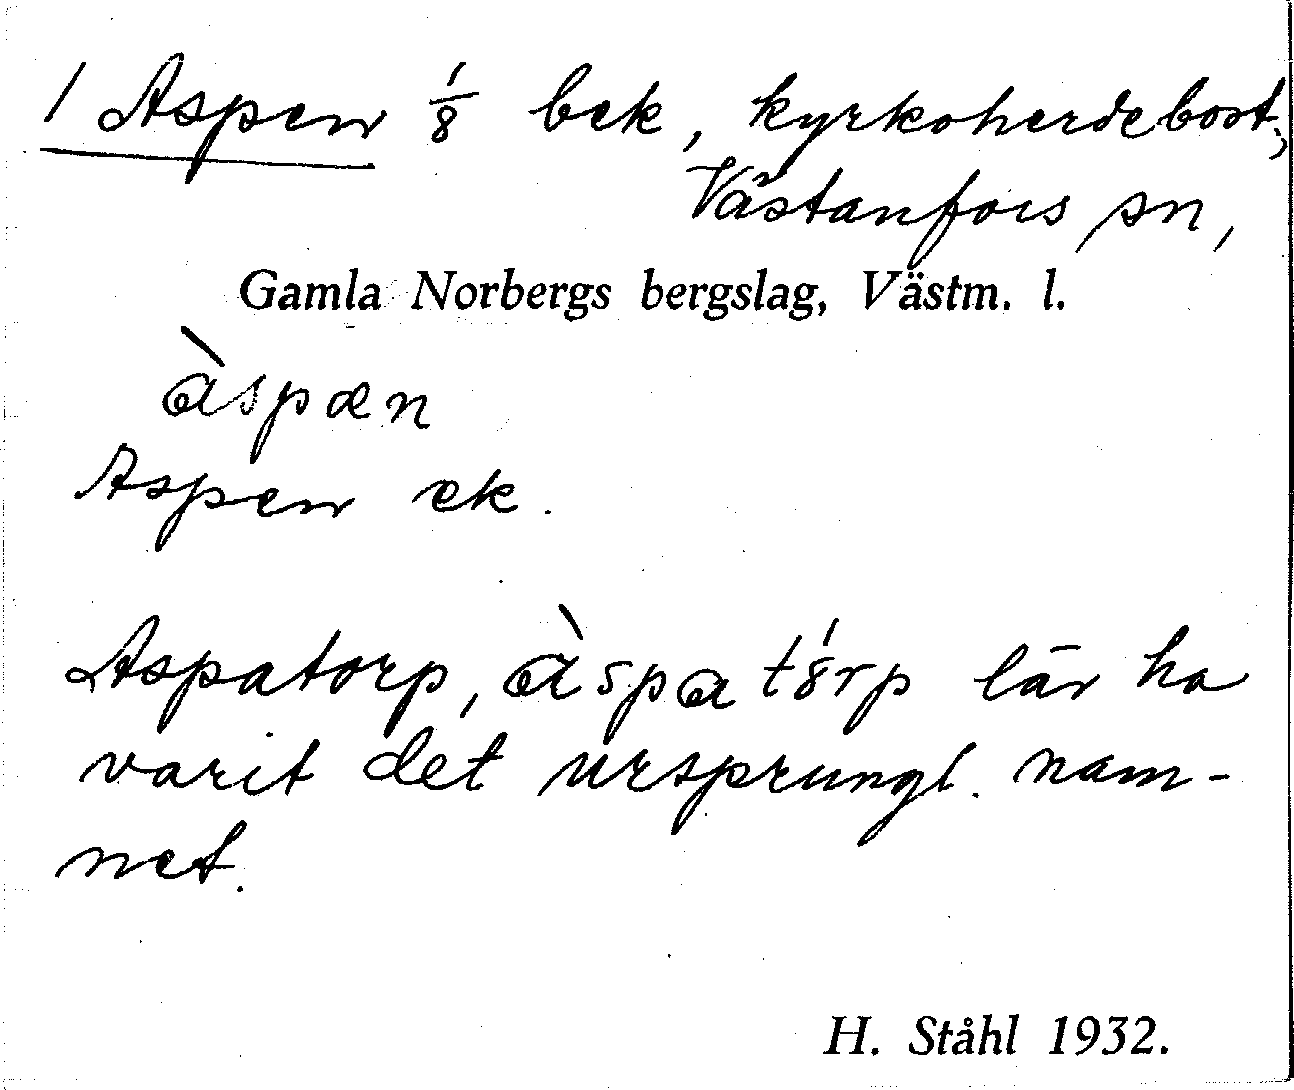 1 Aspen 1/8 bek, kyrkoherdebost.,
Västanfors sn,
Gamla Norbergs bergslag, Västm. l.
àspæn
Aspen ek.
Aspatorp, àspatȯrp lär ha
varit det ursprungl. nam-
net.
H. Ståhl 1932.